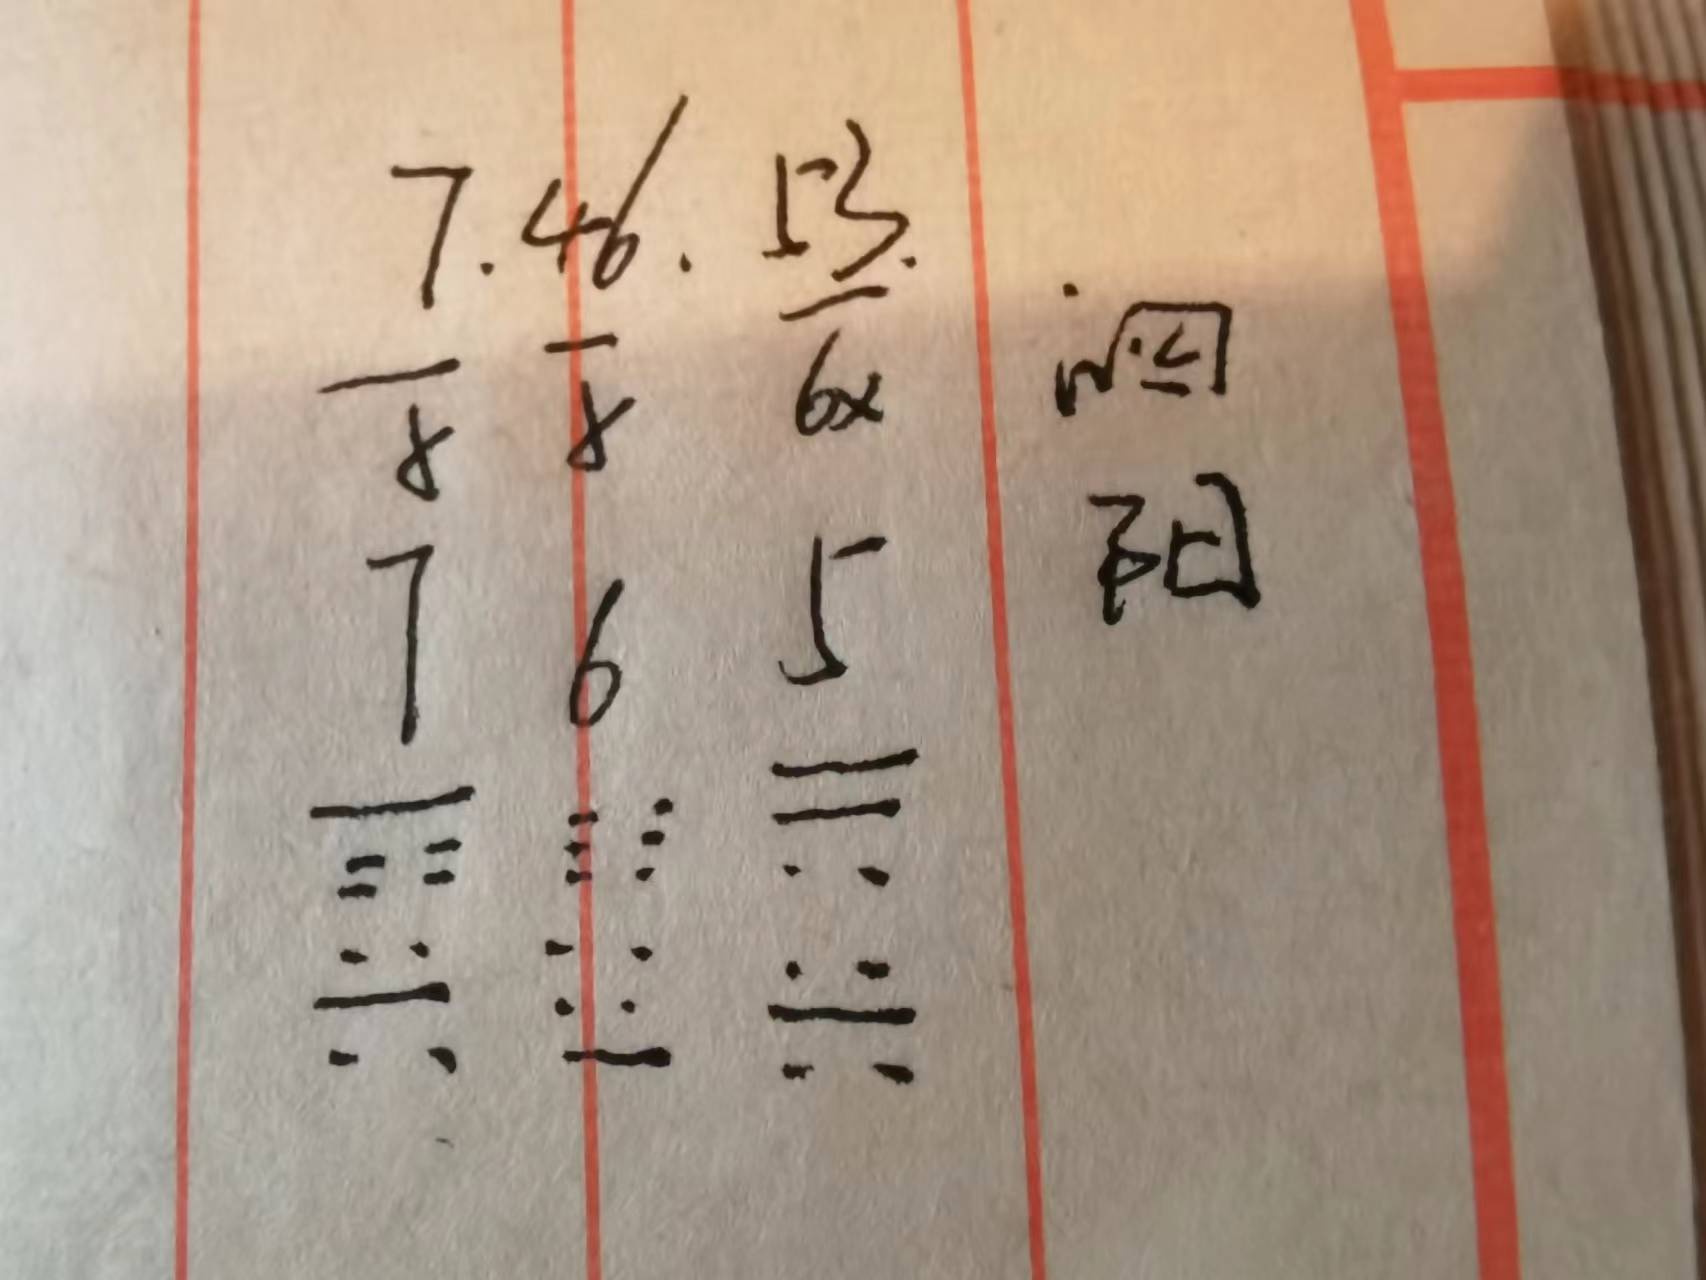 7.46.53.
8 8 6x
7 6 5